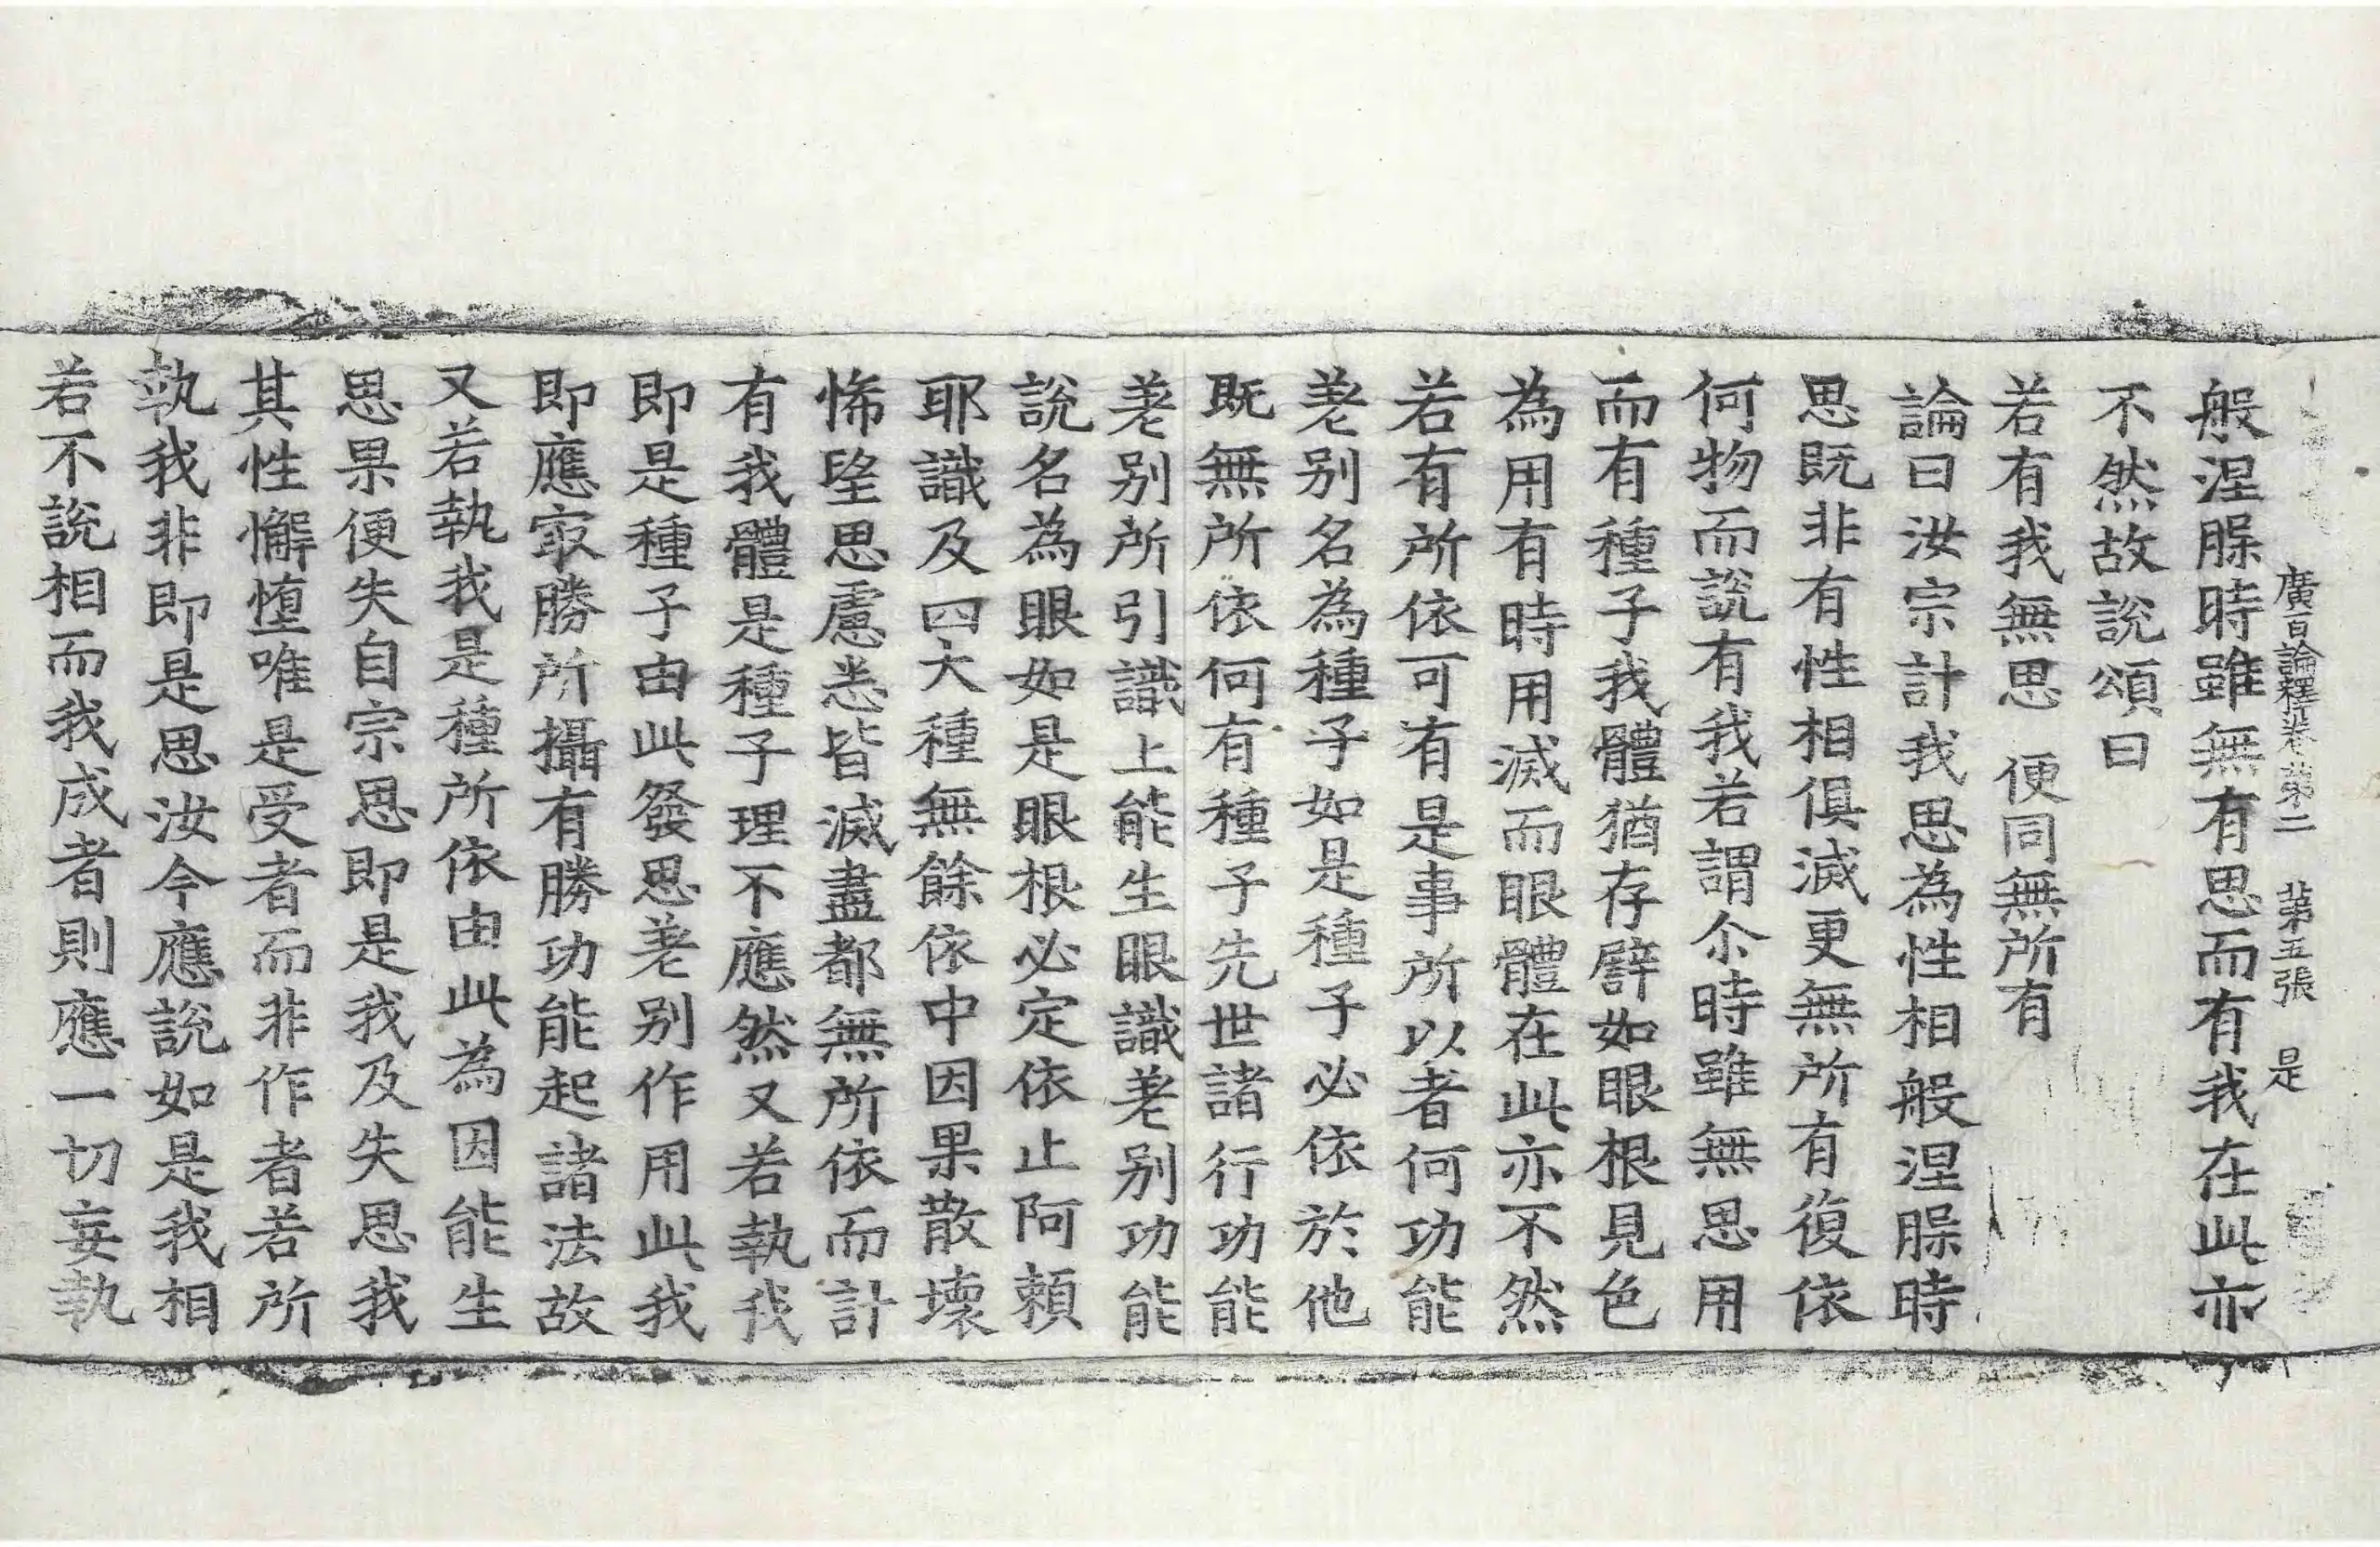 廣百論釋卷第二　第五張　是
般涅腺時雖無有思而有我在此亦
不然故說頌曰
若有我無思　便同無所有
論曰汝宗計我思為性相般涅腺時
思既非有性相俱滅更無所有復依
何物而說有我若謂尒時雖無思用
而有種子我體猶存譬如眼根見色
為用有時用滅而眼體在此亦不然
若有所依可有是事所以者何功能
差別名為種子如是種子必依於他
既無所依何有種子先世諸行功能
差別所引識上能生眼識差別功能
說名為眼如是眼根必定依止阿頼
耶識及四大種無餘依中因果散壞
悕望思慮悉皆滅盡都無所依而計
有我體是種子理不應然又若執我
即是種子由此發思差別作用此我
即應㝡勝所攝有勝功能起諸法故
又若執我是種所依由此為因能生
思果便失自宗思即是我及失思我
其性懈墮唯是受者而非作者若所
執我非即是思汝今應說如是我相
若不說相而我成者則應一切妄執